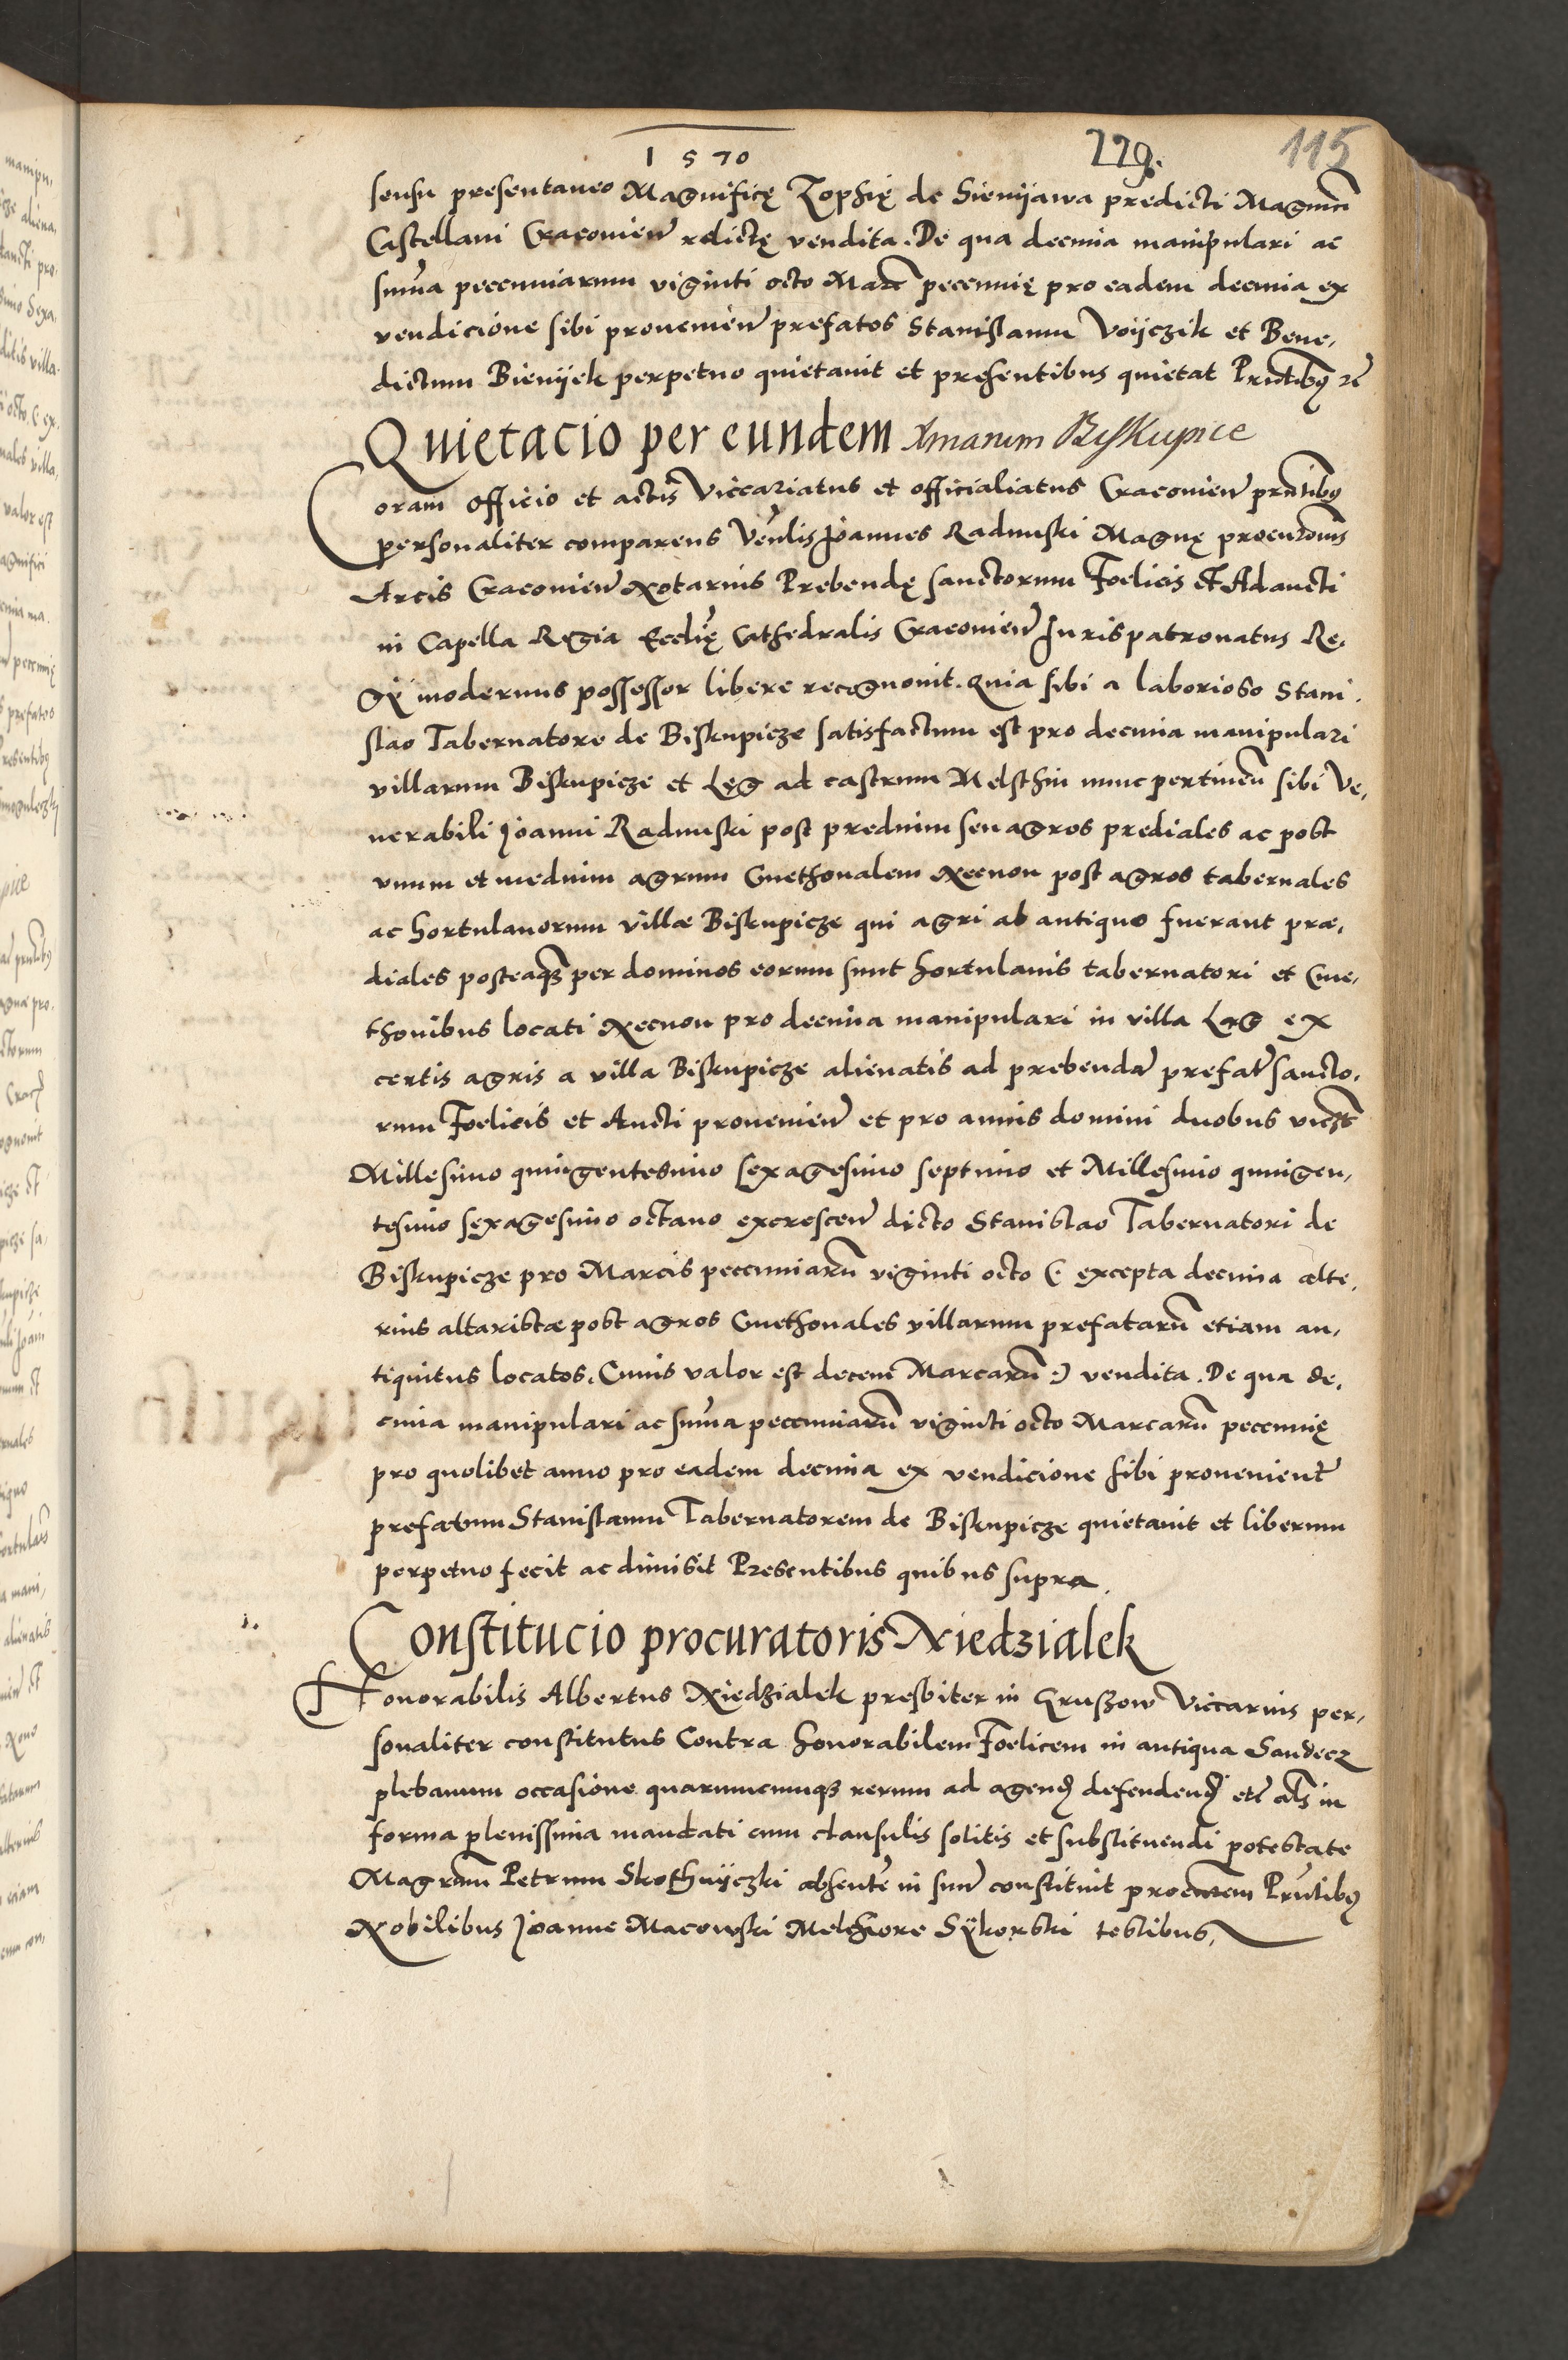 1570
229.
115
sensu presentaneo Magnificę Zophię de Sienijawa predicti Magnifici
Castellani Cracovien relictę vendita. De qua decima manipulari ac
suma pecuniarum viginti octo Marc pecunię pro eadem decima ex
vendicione sibi provenien prefatos Stanislaum Voijczik et Bene,
dictum Bienijek perpetuo quietavit et presentibus quietat Prntibus etc
Quietacio per eundem Xmarum Biskupice
Coram officio et actis Viccariatus et officialiatus Cracovien prntibus
personaliter comparens Venlis Joannes Radunski Magnę procuronis
Arcis Cracovien Notarius Prebendę sanctorum Foelicis et Adaucti
in Capella Regia Ecclię Cathedralis Cracovien Juris patronatus Re,
gÿ modernus possessor libere recognovit. Quia sibi a laborioso Stani,
slao Tabernatore de Biskupicze satisfactum est pro decima manipulari
villarum Biskupicze et Lęg ad castrum Melsthin nunc pertinen sibi Ve,
nerabili Joanni Radunski post predium seu agros prediales ac post
unum et medium agrum Cmethonalem Necnon post agros tabernales
ac hortulanorum villæ Biskupicze qui agri ab antiquo fuerant præ,
diales posteaque per dominos eorum sunt hortulanis tabernatori et Cme,
thonibus locati Necnon pro decima manipulari in villa Lęg ex
certis agris a villa Biskupicze alienatis ad prebendam prefatam sancto,
rum Foelicis et Aucti provenien et pro annis domini duobus viczt
Millesimo quingentesimo sexagesimo septimo et Millesimo quingen,
tesimo sexagesimo octavo excrescen dicto Stanislao Tabernatori de
Biskupicze pro Marcis pecuniarum viginti octo (: excepta decima alte,
rius altaristæ post agros Cmethonales villarum prefatarum etiam an,
tiquitus locatos. Cuius valor est decem Marcarum :) vendita. De qua de,
cima manipulari ac suma pecuniarum viginti octo Marcarum pecunię
pro quolibet anno pro eadem decima ex vendicione sibi provenient
prefatum Stanislaum Tabernatorem de Biskupicze quietavit et liberum
perpetuo fecit ac dimisit Presentibus quibus supra.
1.
Constitucio procuratoris Niedzialek
Honorabilis Albertus Niedzialek presbiter in Gruszow Viccarius per,
sonaliter constitutus Contra honorabilem Foelicem in antiqua Sandecz
plebanum occasione quarumcumque rerum ad agend defendend etc als in
forma plenissima mandati cum clausulis solitis et substituendi potestate
Magrum Petrum Skothniczki absente in sum constituit procuratorem Prntibus
Nobilibus Joanne Macowski Melchiore Sÿkorski testibus.